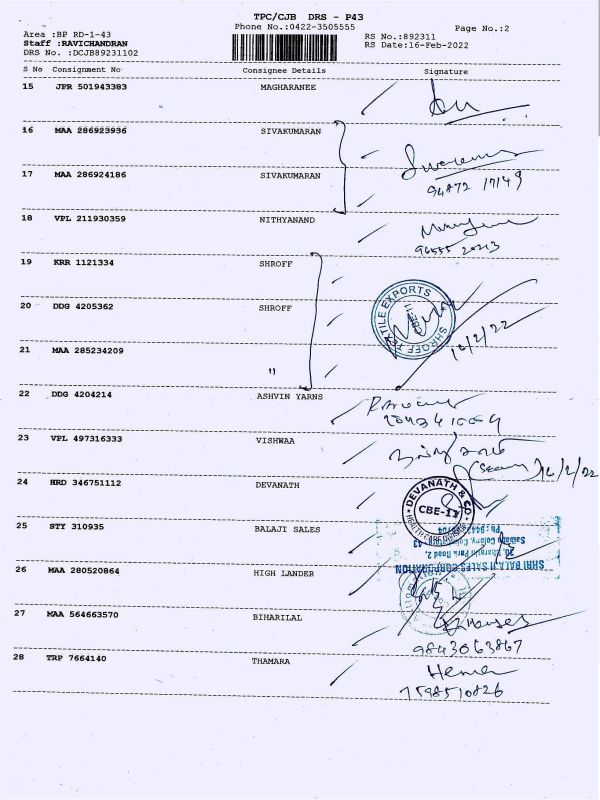 TPC/CJB DRS - P43
Phone No.:0422-3505555
Page No.:2
Area :BP RD-1-43
RS No.:892311
Staff :RAVICHANDRAN
RS Date:16-Feb-2022
DRS No. :DCJB89231102
S No Consignment No Consignee Details Signature
15 JPR 501943383 MAGHARANEE
16 MAA 286923936 SIVAKUMARAN
17 MAA 286924186 SIVAKUMARAN
94872 17149
18 VPL 211930359 NITHYANAND
19 KRR 1121334 SHROFF
20 DDG 4205362 SHROFF
SHROFF TEXTILE EXPORTS
CBE-11
16/2/22
21 MAA 285234209 "
22 DDG 4204214 ASHVIN YARNS
23 VPL 497316333 VISHWAA
16/2/22
24 HRD 346751112 DEVANATH
DEVANATH & CO.
CBE-11
25 STY 310935 BALAJI SALES
SHRI BALAJI SALES CORPORATION
20, Bharathi Park Road 2,
26 MAA 280520864 HIGH LANDER
27 MAA 564663570 BIHARILAL
9843063867
28 TRP 7664140 THAMARA
Hema
7598510826